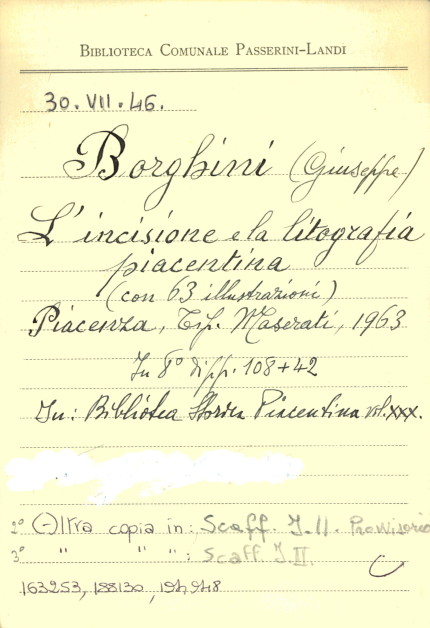 BIBLIOTECA COMUNALE PASSERINI-LANDI
30. VII. 46.
Borghini (Giuseppe)
L'incisione e la litografia
piacentina
(con 63 illustrazioni)
Piacenza, Tip. Maserati, 1963
In 8° di pp. 108+42
In: Biblioteca Storica Piacentina vol. XXX.
2° (-) ltra copia in: Scaff. I.II. Provvisorio
3° " " " : Scaff. I.II.
163253, 188130, 194948